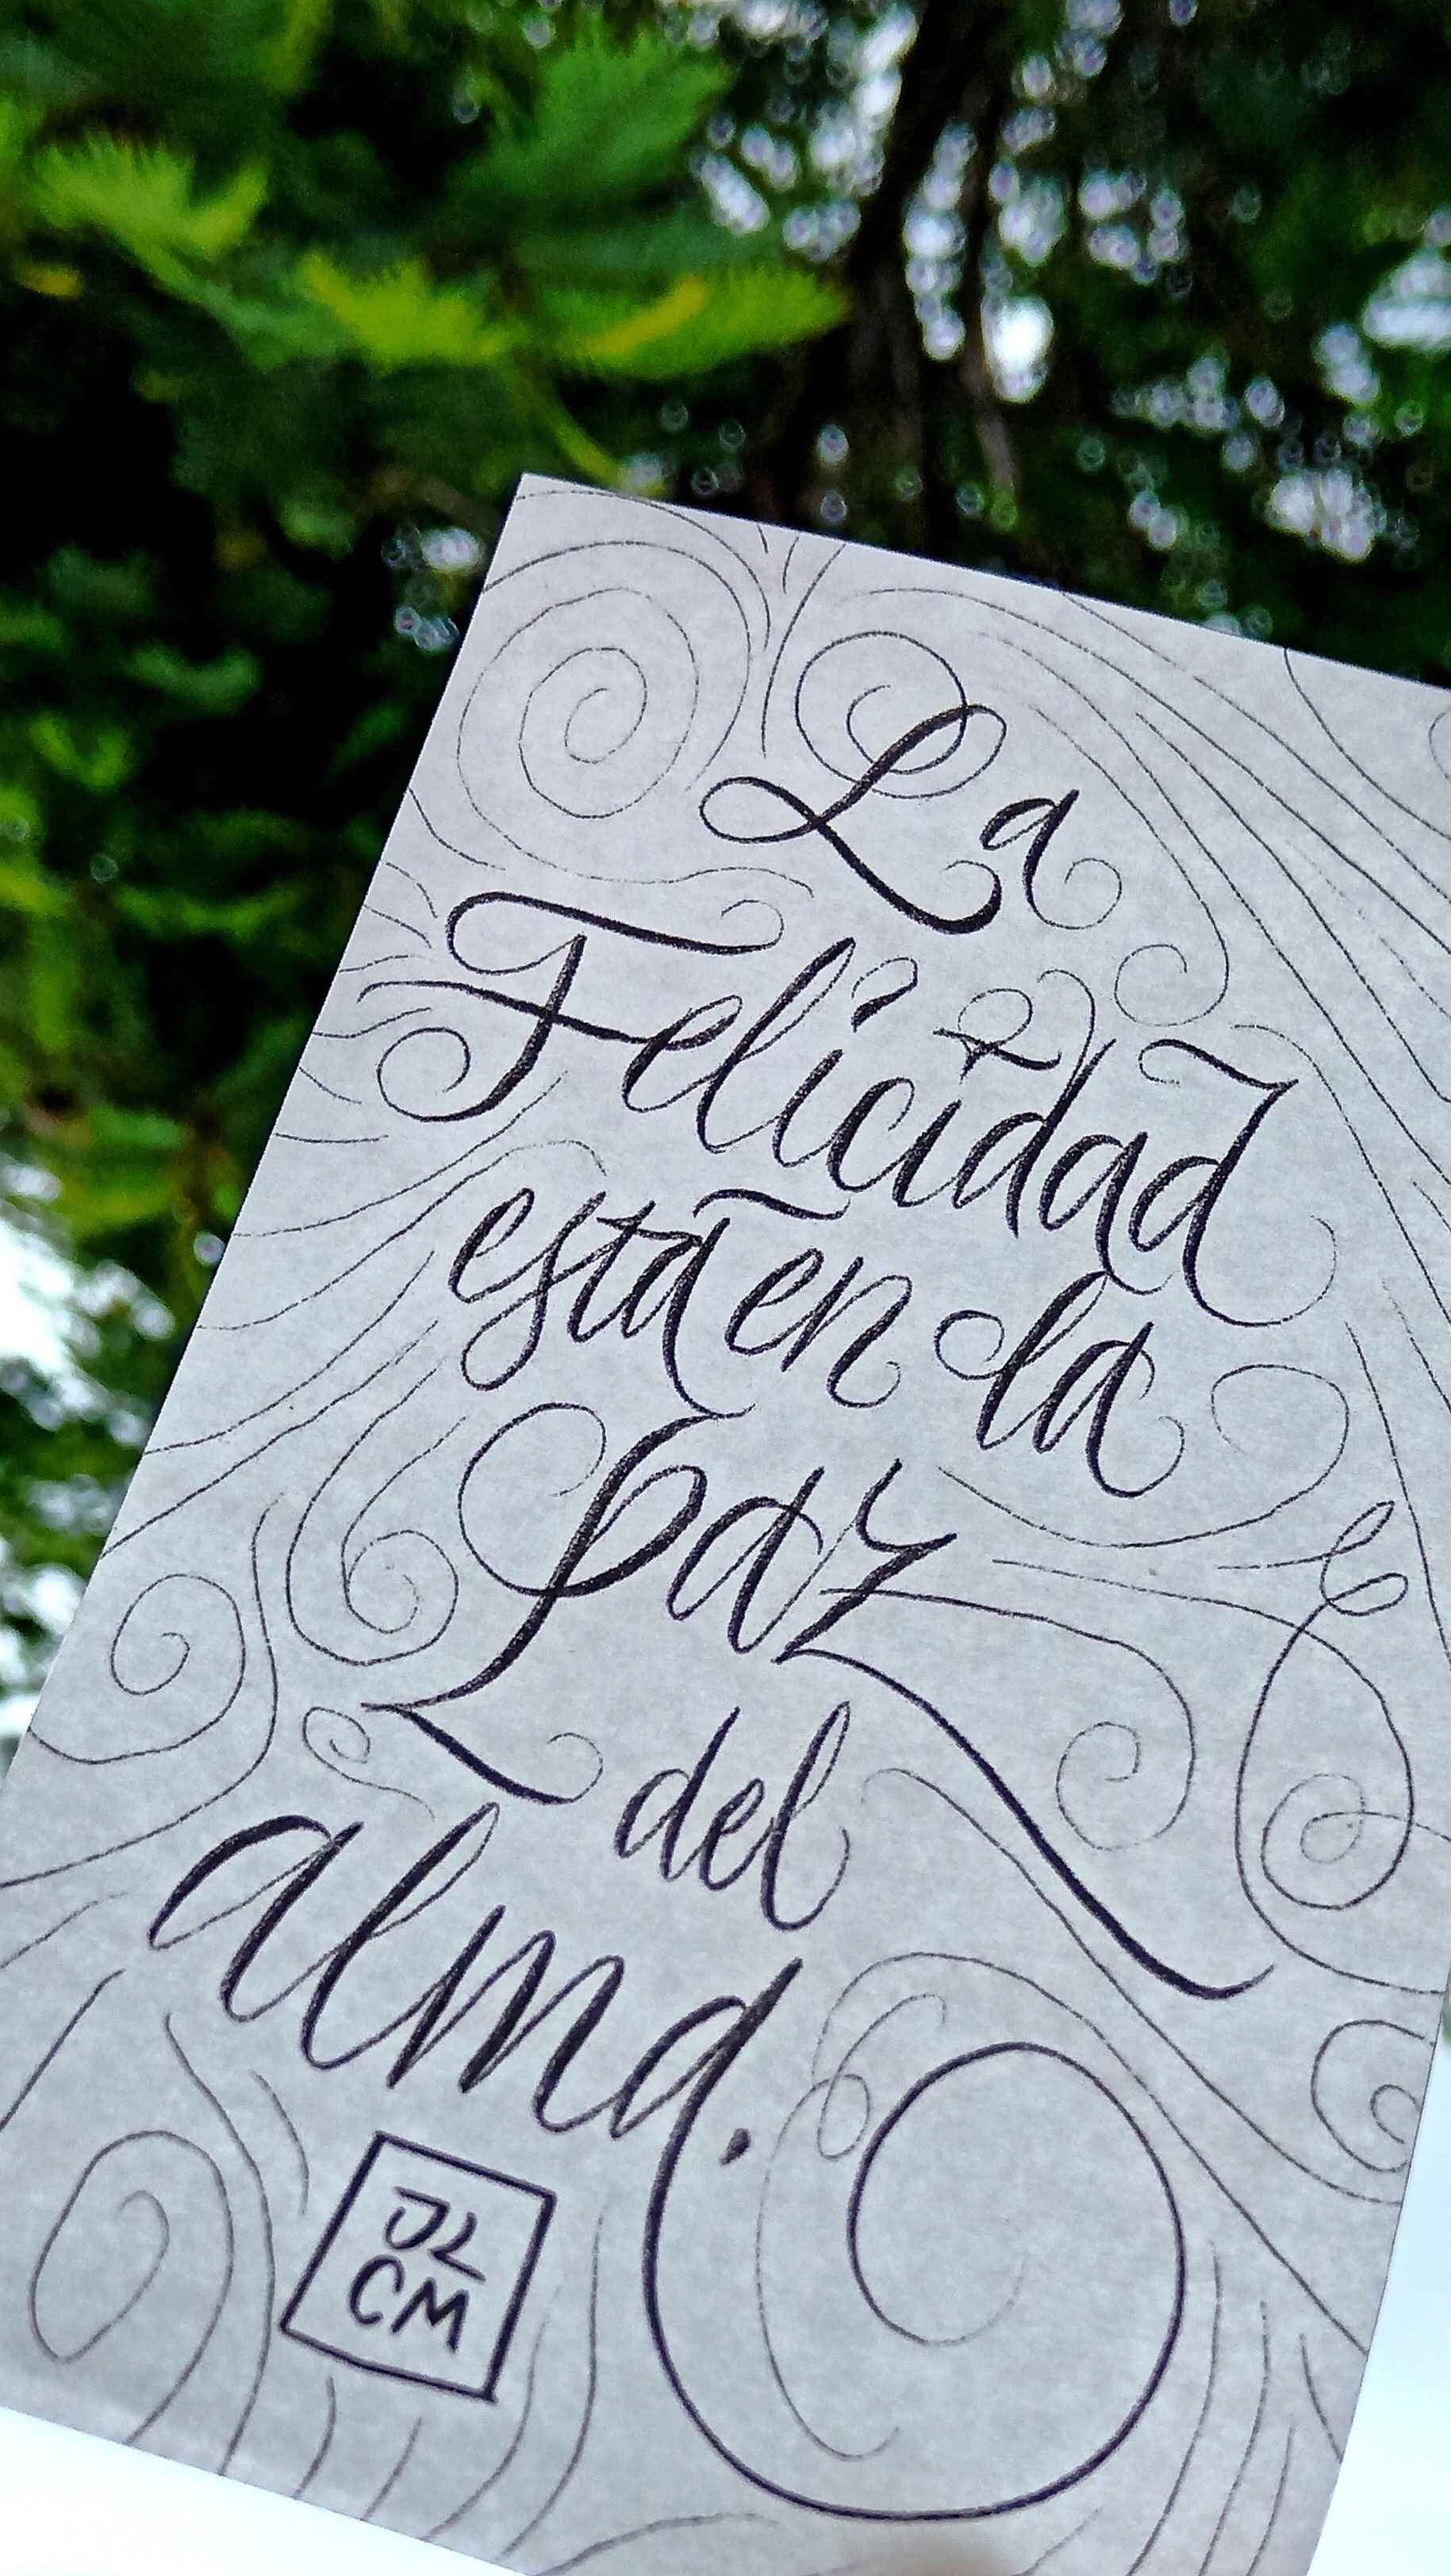 La
Felicidad
está en la
Paz
del
alma.
JL
CM